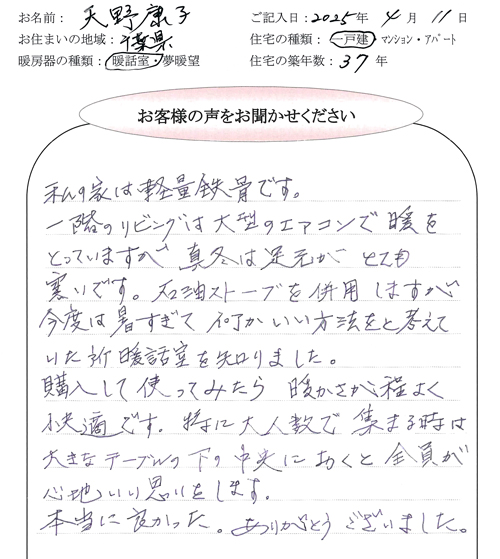 お名前： 天野康子
ご記入日：2025年 4月 11日
お住まいの地域： 千葉県
住宅の種類： 一戸建・マンション・アパート
暖房器の種類： 暖話室・夢暖望
住宅の築年数： 37年
お客様の声をお聞かせください
私の家は軽量鉄骨です。
一階のリビングは大型のエアコンで暖を
とっていますが 真冬は足元が とても
寒いです。石油ストーブを併用しますが
今度は暑すぎて 何かいい方法をと考えて
いた所 暖話室を知りました。
購入して使ってみたら 暖かさが程よく
快適です。特に大人数で集まる時は
大きなテーブルの下の中央におくと全員が
心地いい思いをします。
本当に良かった。ありがとうございました。